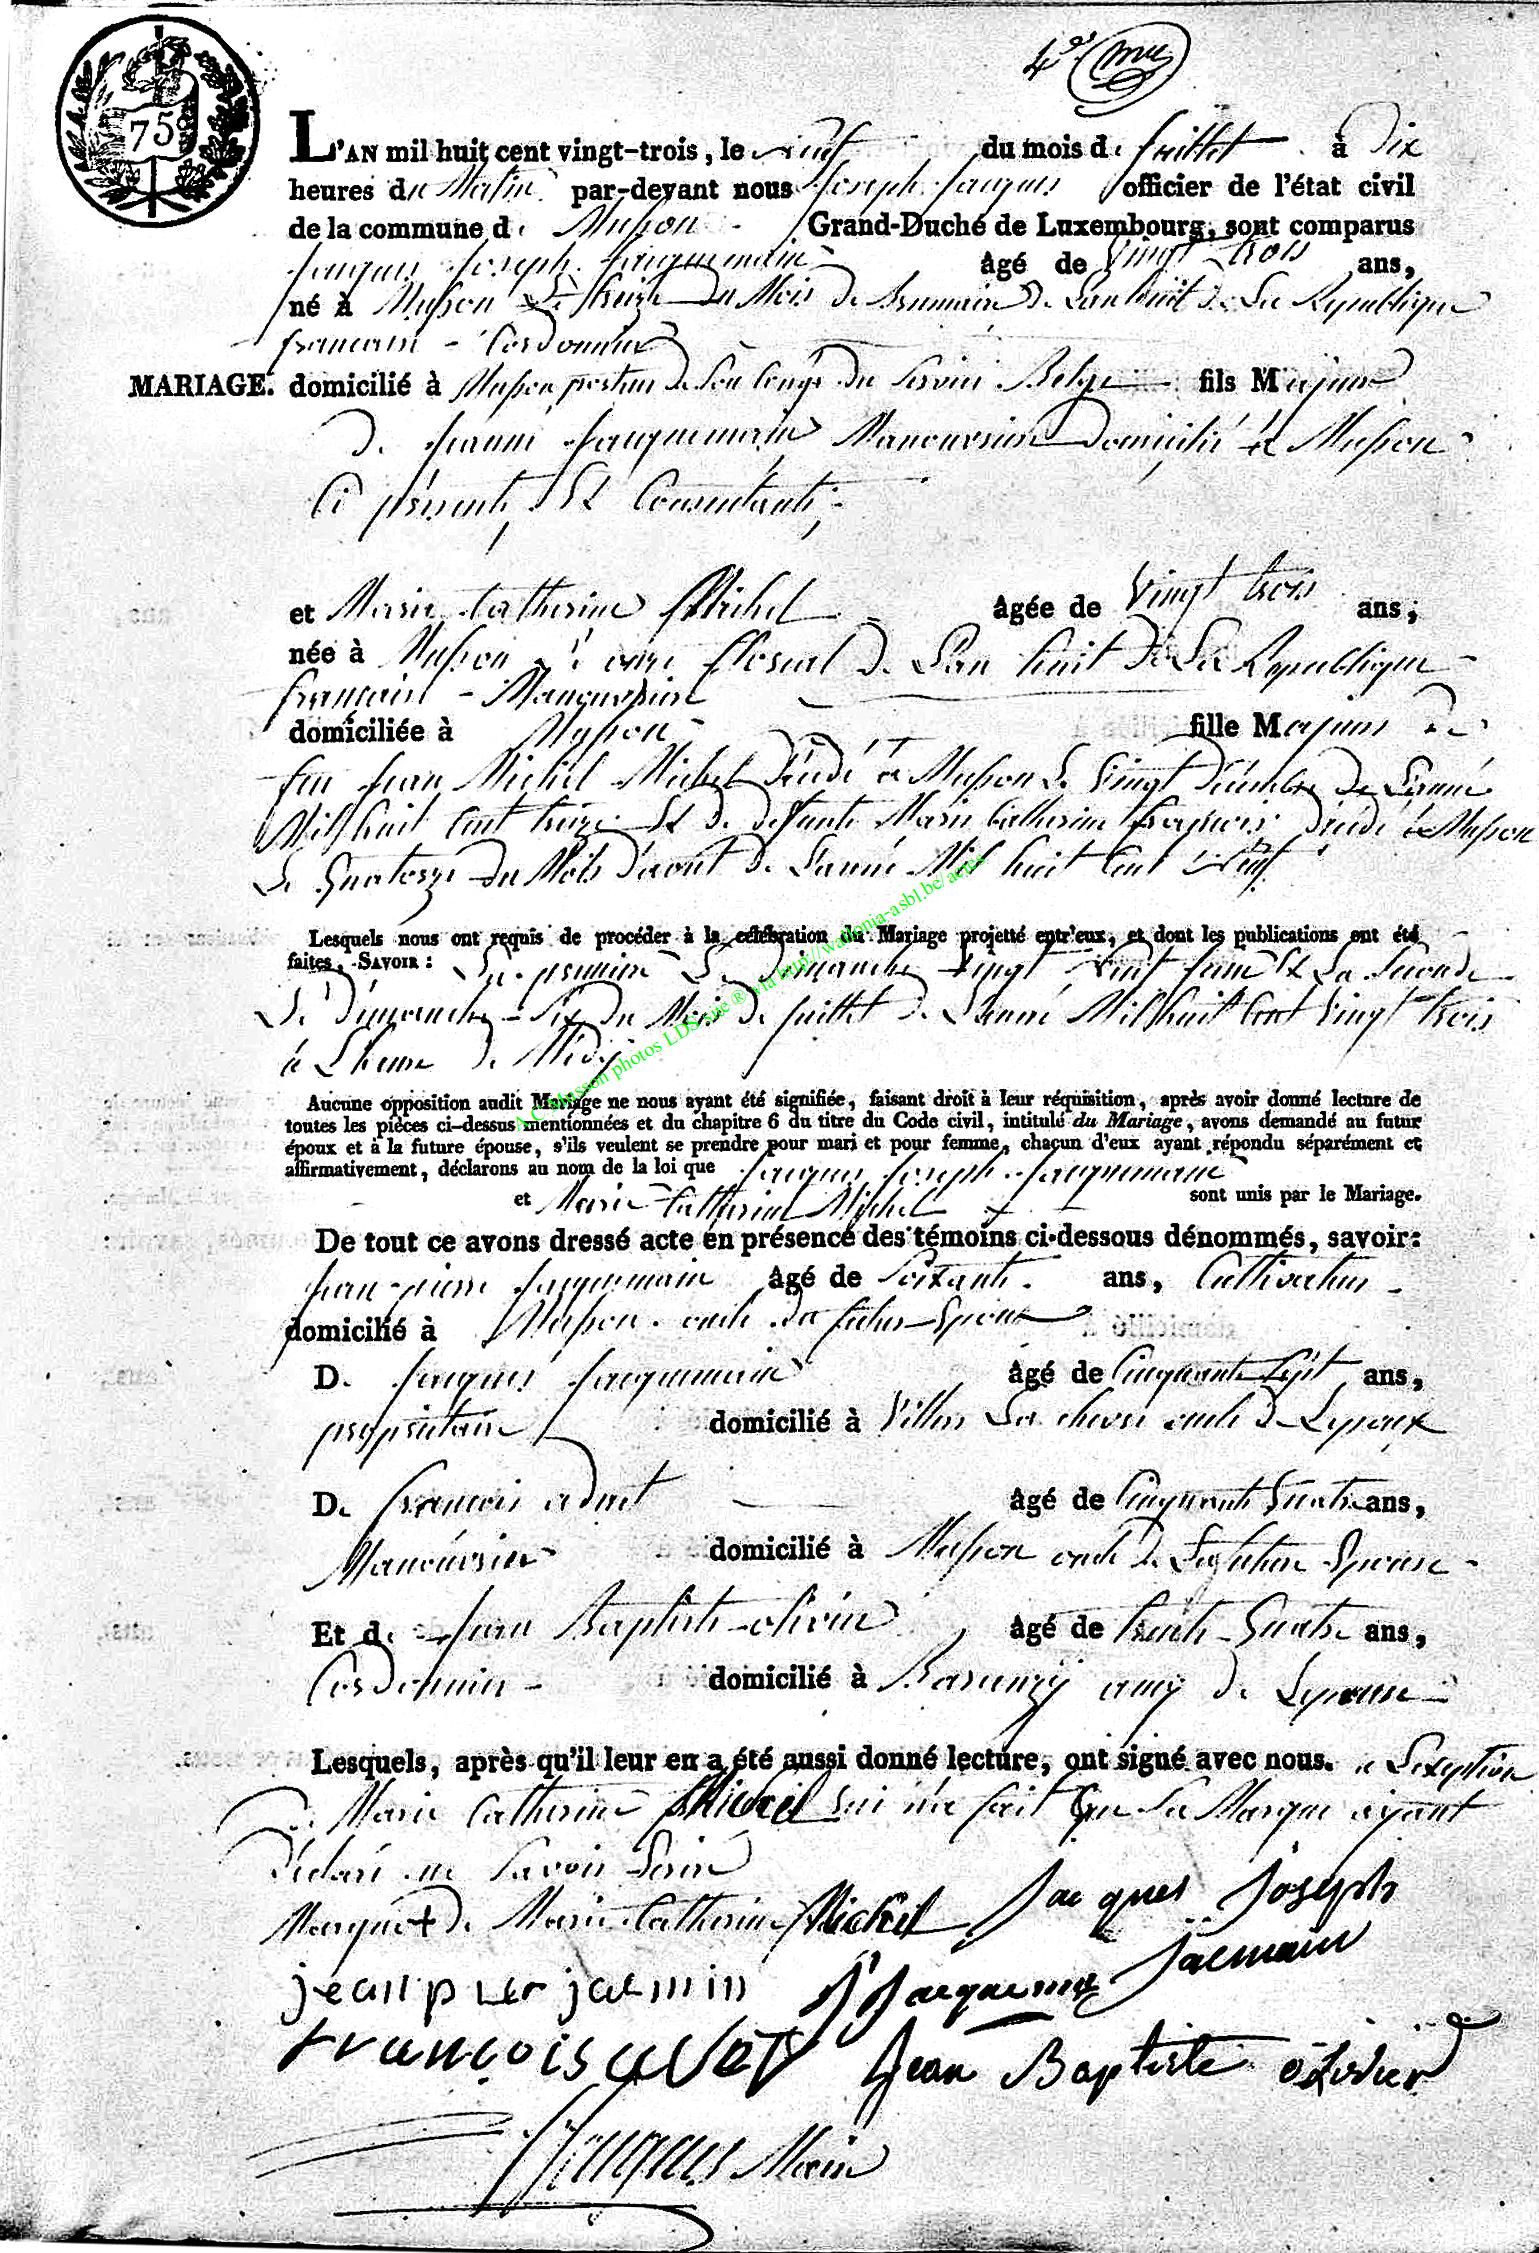 4e
75
L'AN mil huit cent vingt-trois, le neuf du mois de Juillet à Dix
heures du Matin par-devant nous Joseph Jacques officier de l'état civil
de la commune de Musson Grand-Duché de Luxembourg, sont comparus
Jacques Joseph Jacquemain âgé de Vingt trois ans,
né à Musson Le treize du Mois de brumaire de Lan huit de La Republique
francaise - Cordonnier
MARIAGE. domicilié à Musson porteur de Son Congé du Service Belge fils Majeur
de Jeanne Jacquemain Manouvrier domicilié à Musson
Ci présente, Et Consentante,
et Marie Catherine Michel âgée de Vingt trois ans;
née à Musson le onze floreal de Lan huit de La Republique
française - Manouvrier
domiciliée à Musson fille Majeure de
feu Jean Michel Michel décédé à Musson Le Vingt décembre de L'année
Mil huit Cent treize Et de défunte Marie Catherine françois décédé à Musson
Le Quatorze du Mois d'aout de L'année Mil huit Cent
Lesquels nous ont requis de procéder à la célébration du Mariage projetté entr'eux, et dont les publications ont été
faites, SAVOIR: La premiere Le Dimanche Vingt neuf juin Et La Seconde
Le Dimanche Six du Mois de juillet de L'année Mil huit Cent Vingt trois
à L'heure de Midy
A.C. Musson photos LDS site ® via http://wallonia-asbl.be/actes
Aucune opposition audit Mariage ne nous ayant été signifiée, faisant droit à leur réquisition, après avoir donné lecture de
toutes les pièces ci-dessus mentionnées et du chapitre 6 du titre du Code civil, intitulé du Mariage, avons demandé au futur
époux et à la future épouse, s'ils veulent se prendre pour mari et pour femme, chacun d'eux ayant répondu séparément et
affirmativement, déclarons au nom de la loi que Jacques Joseph Jacquemain
et Marie Catherine Michel sont unis par le Mariage.
De tout ce avons dressé acte en présence des témoins ci-dessous dénommés, savoir:
Jean-pierre Jacquemain âgé de Soixante ans, Cultivateur
domicilié à Musson oncle du futur Epoux
De Jacques Jacquemain âgé de Cinquante Sept ans,
propriétaire domicilié à Villers La chevre oncle de Lepoux
De francois adnet âgé de Cinquante Quatre ans,
Manouvrier domicilié à Musson oncle de La future Epouse
Et de Jean Baptiste olivier âgé de trente Quatre ans,
Cordonnier domicilié à Baranzy amy de Lepouse
Lesquels, après qu'il leur en a été aussi donné lecture, ont signé avec nous. a Lexeption
de Marie Catherine Michel qui n'a fait que Sa Marque ayant
Déclaré ne Savoir Ecrire
Marque + de Marie Catherine Michel Jacques Joseph
Jacmain
jean pier jacmin J Jacquemin
françois Jean Baptiste olivier
J Jacques Maire